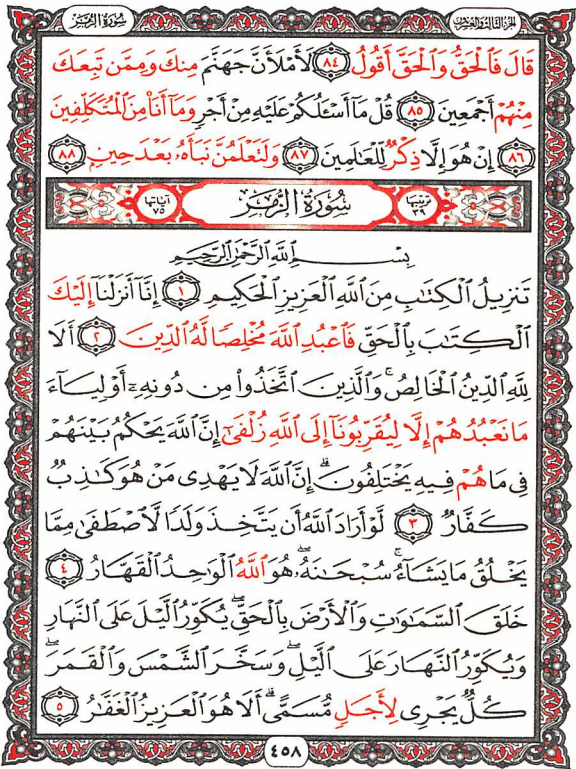 سُورَةُ الزُّمَرِ
الجزء الثالث والعشرون
قَالَ فَٱلْحَقُّ وَٱلْحَقَّ أَقُولُ ٨٤ لَأَمْلَأَنَّ جَهَنَّمَ مِنكَ وَمِمَّن تَبِعَكَ
مِنْهُمْ أَجْمَعِينَ ٨٥ قُلْ مَآ أَسْـَٔلُكُمْ عَلَيْهِ مِنْ أَجْرٍ وَمَآ أَنَا۠ مِنَ ٱلْمُتَكَلِّفِينَ
٨٦ إِنْ هُوَ إِلَّا ذِكْرٌ لِّلْعَـٰلَمِينَ ٨٧ وَلَتَعْلَمُنَّ نَبَأَهُۥ بَعْدَ حِينٍۭ ٨٨
ترتيبها ٣٩
سُورَةُ الزُّمَرِ
آياتها ٧٥
بِسْمِ ٱللَّهِ ٱلرَّحْمَـٰنِ ٱلرَّحِيمِ
تَنزِيلُ ٱلْكِتَـٰبِ مِنَ ٱللَّهِ ٱلْعَزِيزِ ٱلْحَكِيمِ ١ إِنَّآ أَنزَلْنَآ إِلَيْكَ
ٱلْكِتَـٰبَ بِٱلْحَقِّ فَٱعْبُدِ ٱللَّهَ مُخْلِصًا لَّهُ ٱلدِّينَ ٢ أَلَا
لِلَّهِ ٱلدِّينُ ٱلْخَالِصُ ۚ وَٱلَّذِينَ ٱتَّخَذُوا۟ مِن دُونِهِۦٓ أَوْلِيَآءَ
مَا نَعْبُدُهُمْ إِلَّا لِيُقَرِّبُونَآ إِلَى ٱللَّهِ زُلْفَىٰٓ إِنَّ ٱللَّهَ يَحْكُمُ بَيْنَهُمْ
فِى مَا هُمْ فِيهِ يَخْتَلِفُونَ ۗ إِنَّ ٱللَّهَ لَا يَهْدِى مَنْ هُوَ كَـٰذِبٌ
كَفَّارٌ ٣ لَّوْ أَرَادَ ٱللَّهُ أَن يَتَّخِذَ وَلَدًا لَّٱصْطَفَىٰ مِمَّا
يَخْلُقُ مَا يَشَآءُ ۚ سُبْحَـٰنَهُۥ ۖ هُوَ ٱللَّهُ ٱلْوَٰحِدُ ٱلْقَهَّارُ ٤
خَلَقَ ٱلسَّمَـٰوَٰتِ وَٱلْأَرْضَ بِٱلْحَقِّ ۖ يُكَوِّرُ ٱلَّيْلَ عَلَى ٱلنَّهَارِ
وَيُكَوِّرُ ٱلنَّهَارَ عَلَى ٱلَّيْلِ ۖ وَسَخَّرَ ٱلشَّمْسَ وَٱلْقَمَرَ ۖ
كُلٌّ يَجْرِى لِأَجَلٍ مُّسَمًّى ۗ أَلَا هُوَ ٱلْعَزِيزُ ٱلْغَفَّـٰرُ ٥
٤٥٨